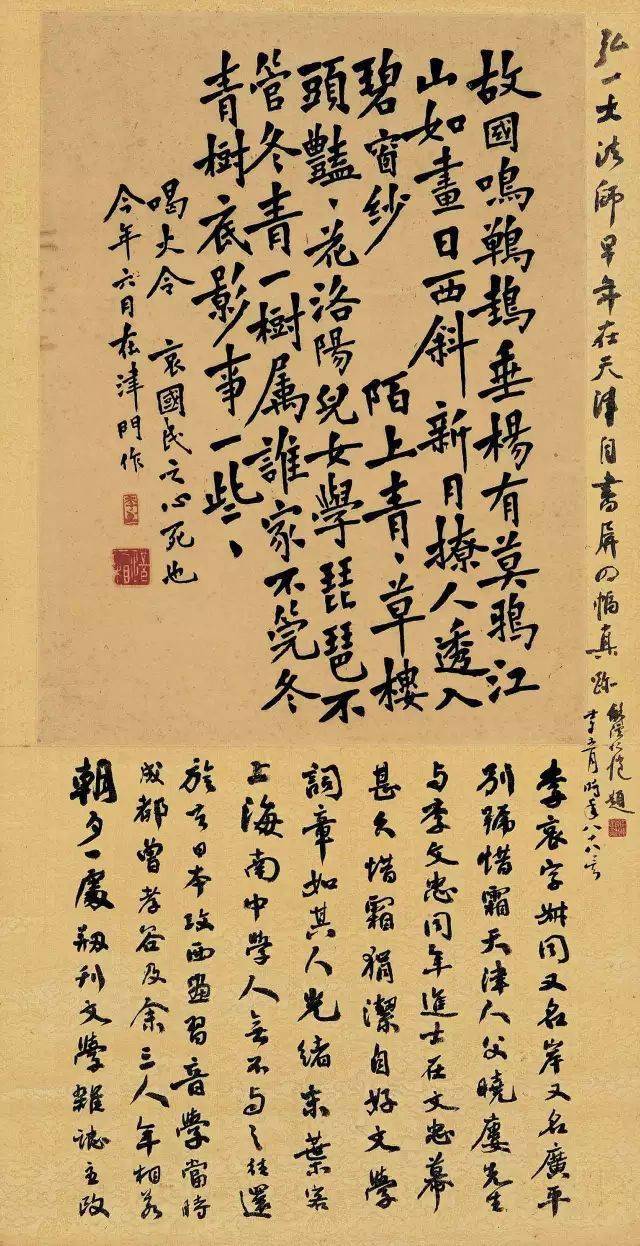 弘一大法師早年在天津自書屏四幅真跡
仁愷題
月時年八十八
故國鳴鷤鴂垂楊有莫鴉江
山如畫日西斜新月撩人透入
碧窗紗 陌上青、草樓
頭豔、花洛陽兒女學琵琶不
管冬青一樹属誰家不筦冬
青樹底影事一些、
喝火令 哀國民之心死也
今年六月在津門作
李哀字漱同又名岸又名廣平
别號惜霜天津人父曉廔先生
与李文忠同年進士在文忠幕
甚久惜霜狷潔自好文學
詞章如其人光緒末葉客
上海南中學人無不与之往還
旋去日本攻西畫習音學當時
成都曾孝谷及余三人年相若
朝夕一處刱刊文學雜誌主政